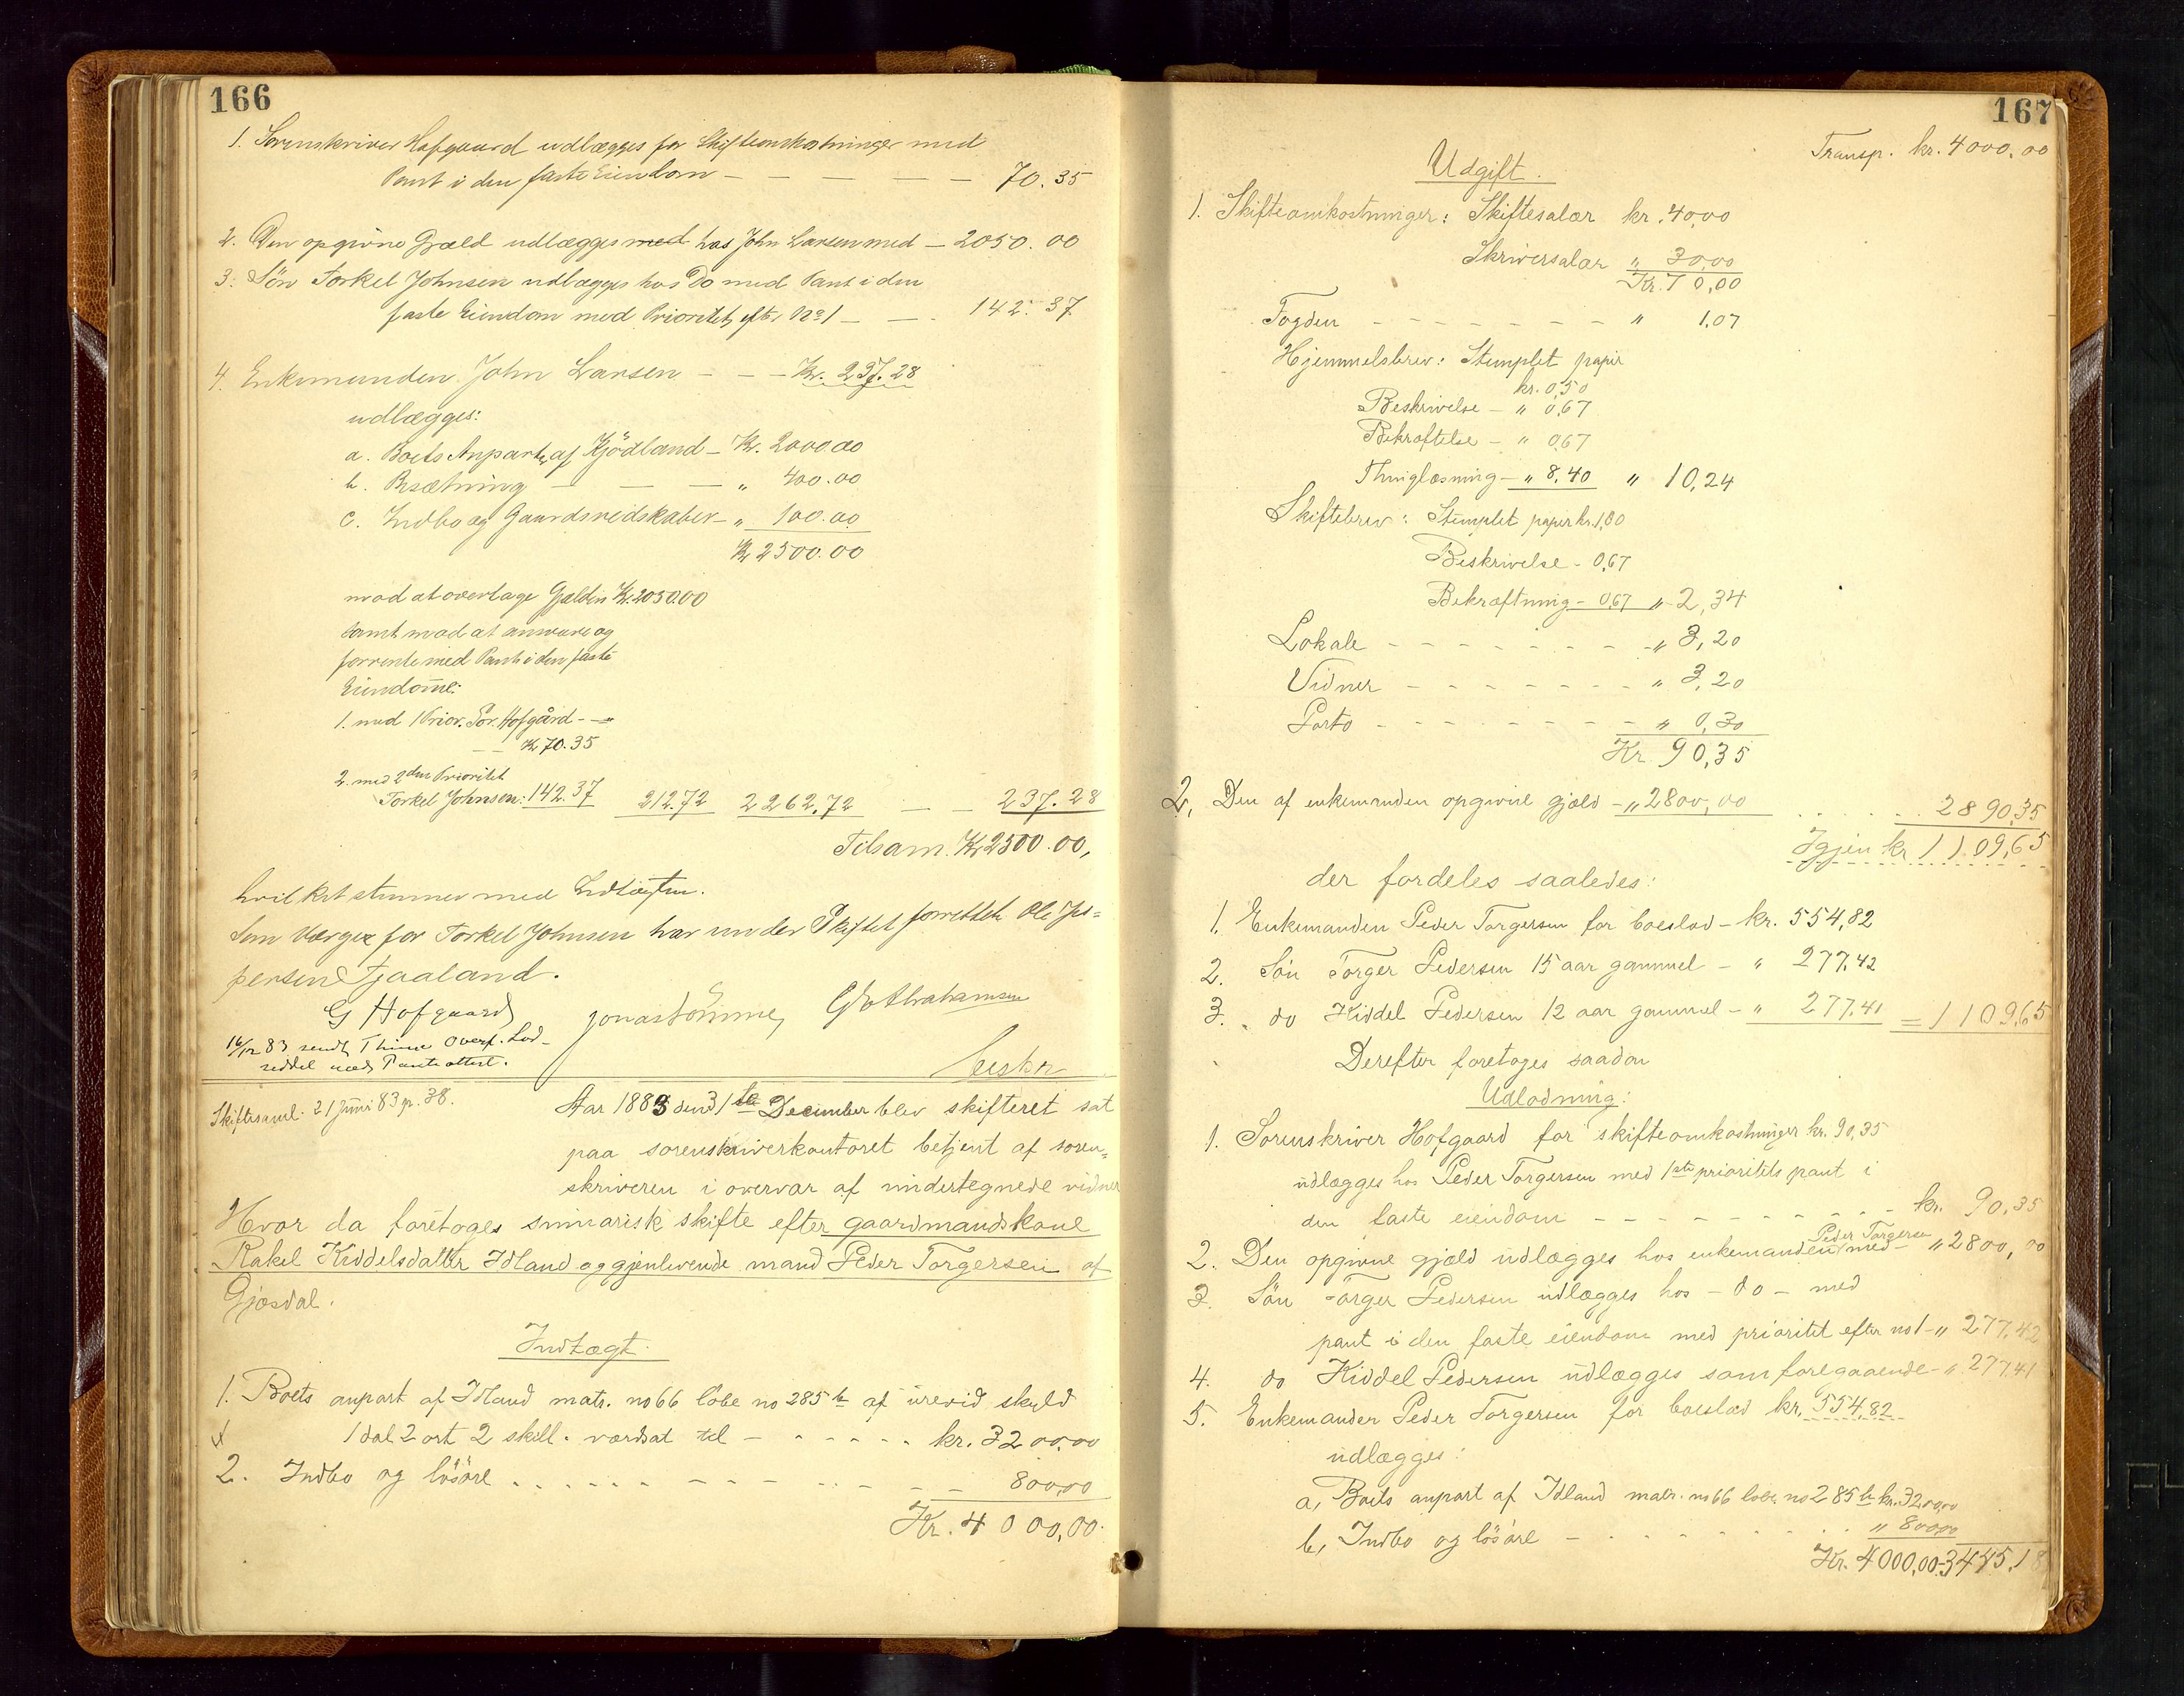 166
1. Sorenskriver Hofgaard udlægges for Skifteomkostninger med
Pant i den faste Eiendom – – – – – 70.35
2. Den opgivne Gjæld udlægges med hos John Larsen med – 2050.00
3. Sön Torkel Johnsen udlægges hos Do med Pant i den
faste Eiendom med Prioritet efter No 1 – – 142.37
4. Enkemanden John Larsen – – – Kr. 237.28
udlægges:
a. Boets Anpart af Kjödland – Kr. 2000.00
b. Besætning – – – „ 400.00
c. Indbo og Gaardsredskaber – „ 100.00
Kr 2500.00
mod at overtage Gjælden Kr. 2050.00
samt mod at ansvare og
forrente med Pant i den faste
Eiendom:
1. med 1 Prior. Sor. Hofgård – –
– – Kr 70.35
2. med 2den Prioritet
Torkel Johnsen: 142.37 212.72 2262.72 – – 237.28
Tilsam. Kr 2500.00,
hvilket stemmer med Indtægten.
Som Værge for Torkel Johnsen har under Skiftet forrettet Ole Jes=
persen Tjaaland.
G Hofgaard Jonas Tömme, Abrahamsen
16/12 83 sendt Thime Overf. Lod-
seddel med Panteattest.
Skiftesaml. 21 Juni 83 p. 38.
Aar 1883 den 31te December blev skifteret sat
paa sorenskriverkontoret betjent af soren=
skriveren i overvær af undertegnede vidner
Hvor da foretoges summarisk skifte efter gaardmandskone
Rakel Kiddelsdatter Idland og gjenlevende mand Peder Torgersen af
Gjæsdal.
Indtægt.
1. Boets anpart af Idland matr. no 66 löbe no 285 b af urevid skyld
1 dal 2 ort 2 skill. værdsat til – – – – – kr. 3200,00
2. Indbo og lösöre – – – – – 800,00
Kr. 4000,00.
167
Transp. kr. 4000.00
Udgift.
1. Skifteomkostninger: Skiftesalær kr. 40,00
Skriversalær „ 30,00
Kr. 70,00
Fogden – – – – – – – „ 1,07
Hjemmelsbrev: Stemplet papir
kr. 0,50
Beskrivelse – „ 0,67
Bekræftelse – „ 0,67
Thinglæsning – „ 8,40 „ 10,24
Skiftebrev: Stemplet papir kr. 1,00
Beskrivelse – 0,67
Bekræftning – 0,67 „ 2,34
Lokale – – – – – – – „ 3,20
Vidner – – – – – – – „ 3,20
Porto – – – – – – – „ 0,30
Kr. 90,35
2, Den af enkemanden opgivne gjæld – „ 2800,00 . . . . . 2890,35
Igjen kr 1109,65
der fordeles saaledes:
1. Enkemanden Peder Torgersen for boeslod – kr. 554,82
2. Sön Torger Pedersen 15 aar gammel – „ 277,42
3. „ do Kiddel Pedersen 12 aar gammel – „ 277,41 = 1109,65
Derefter foretoges saadan
Udlodning:
1. Sorenskriver Hofgaard for skifteomkostninger kr. 90,35
udlægges hos Peder Torgersen med 1ste prioritets pant i
den faste eiendom – – – – – – – – – kr. 90,35
Peder Torgersen
2. Den opgivne gjæld udlægges hos enkemanden med – „ 2800,00
3. Sön Torger Pedersen udlægges hos – do – med
pant i den faste eiendom med prioritet efter no 1 – „ 277,42
4. do Kiddel Pedersen udlægges som foregaaende – „ 277,41
5. Enkemanden Peder Torgersen for boeslod kr. 554,82
udlægges:
a, Boets anpart af Idland matr. no 66 löbe no 285 b kr. 3200,00
b, Indbo og lösöre – – – – – – „ 800,00
Kr. 4000,00 3445,18